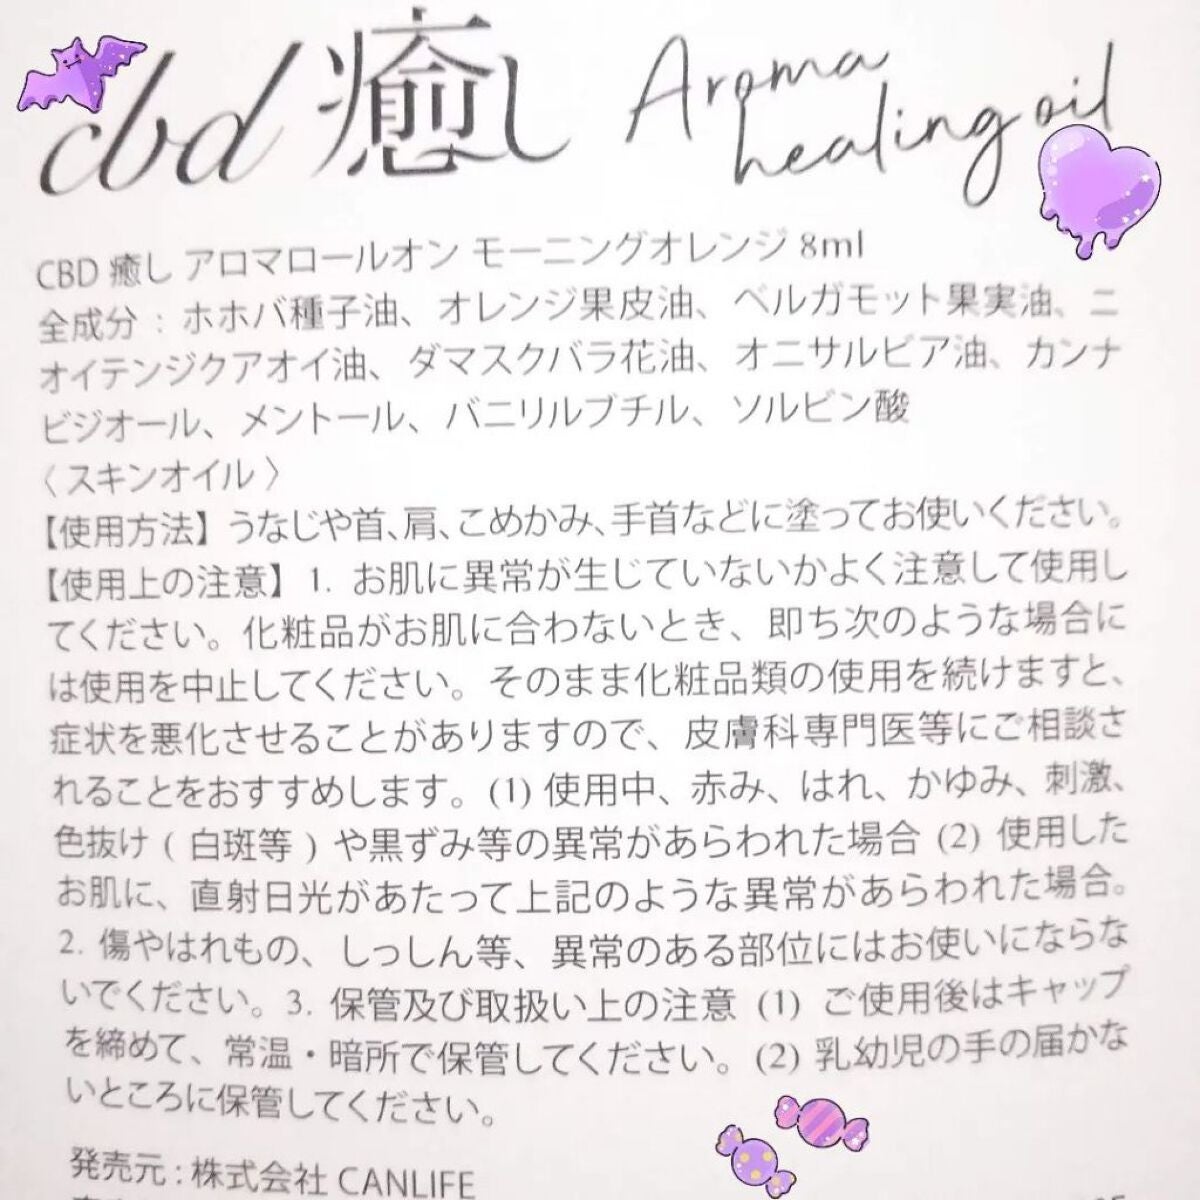 cbd 癒し Aroma healing oil
CBD 癒し アロマロールオン モーニングオレンジ 8ml
全成分 : ホホバ種子油、オレンジ果皮油、ベルガモット果実油、ニ
オイテンジクアオイ油、ダマスクバラ花油、オニサルビア油、カンナ
ビジオール、メントール、バニリルブチル、ソルビン酸
〈スキンオイル〉
【使用方法】うなじや首、肩、こめかみ、手首などに塗ってお使いください。
【使用上の注意】1. お肌に異常が生じていないかよく注意して使用し
てください。化粧品がお肌に合わないとき、即ち次のような場合に
は使用を中止してください。そのまま化粧品類の使用を続けますと、
症状を悪化させることがありますので、皮膚科専門医等にご相談さ
れることをおすすめします。(1) 使用中、赤み、はれ、かゆみ、刺激、
色抜け ( 白斑等 ) や黒ずみ等の異常があらわれた場合 (2) 使用した
お肌に、直射日光があたって上記のような異常があらわれた場合。
2. 傷やはれもの、しっしん等、異常のある部位にはお使いにならな
いでください。3. 保管及び取扱い上の注意 (1) ご使用後はキャップ
を締めて、常温・暗所で保管してください。(2) 乳幼児の手の届かな
いところに保管してください。
発売元 : 株式会社 CANLIFE